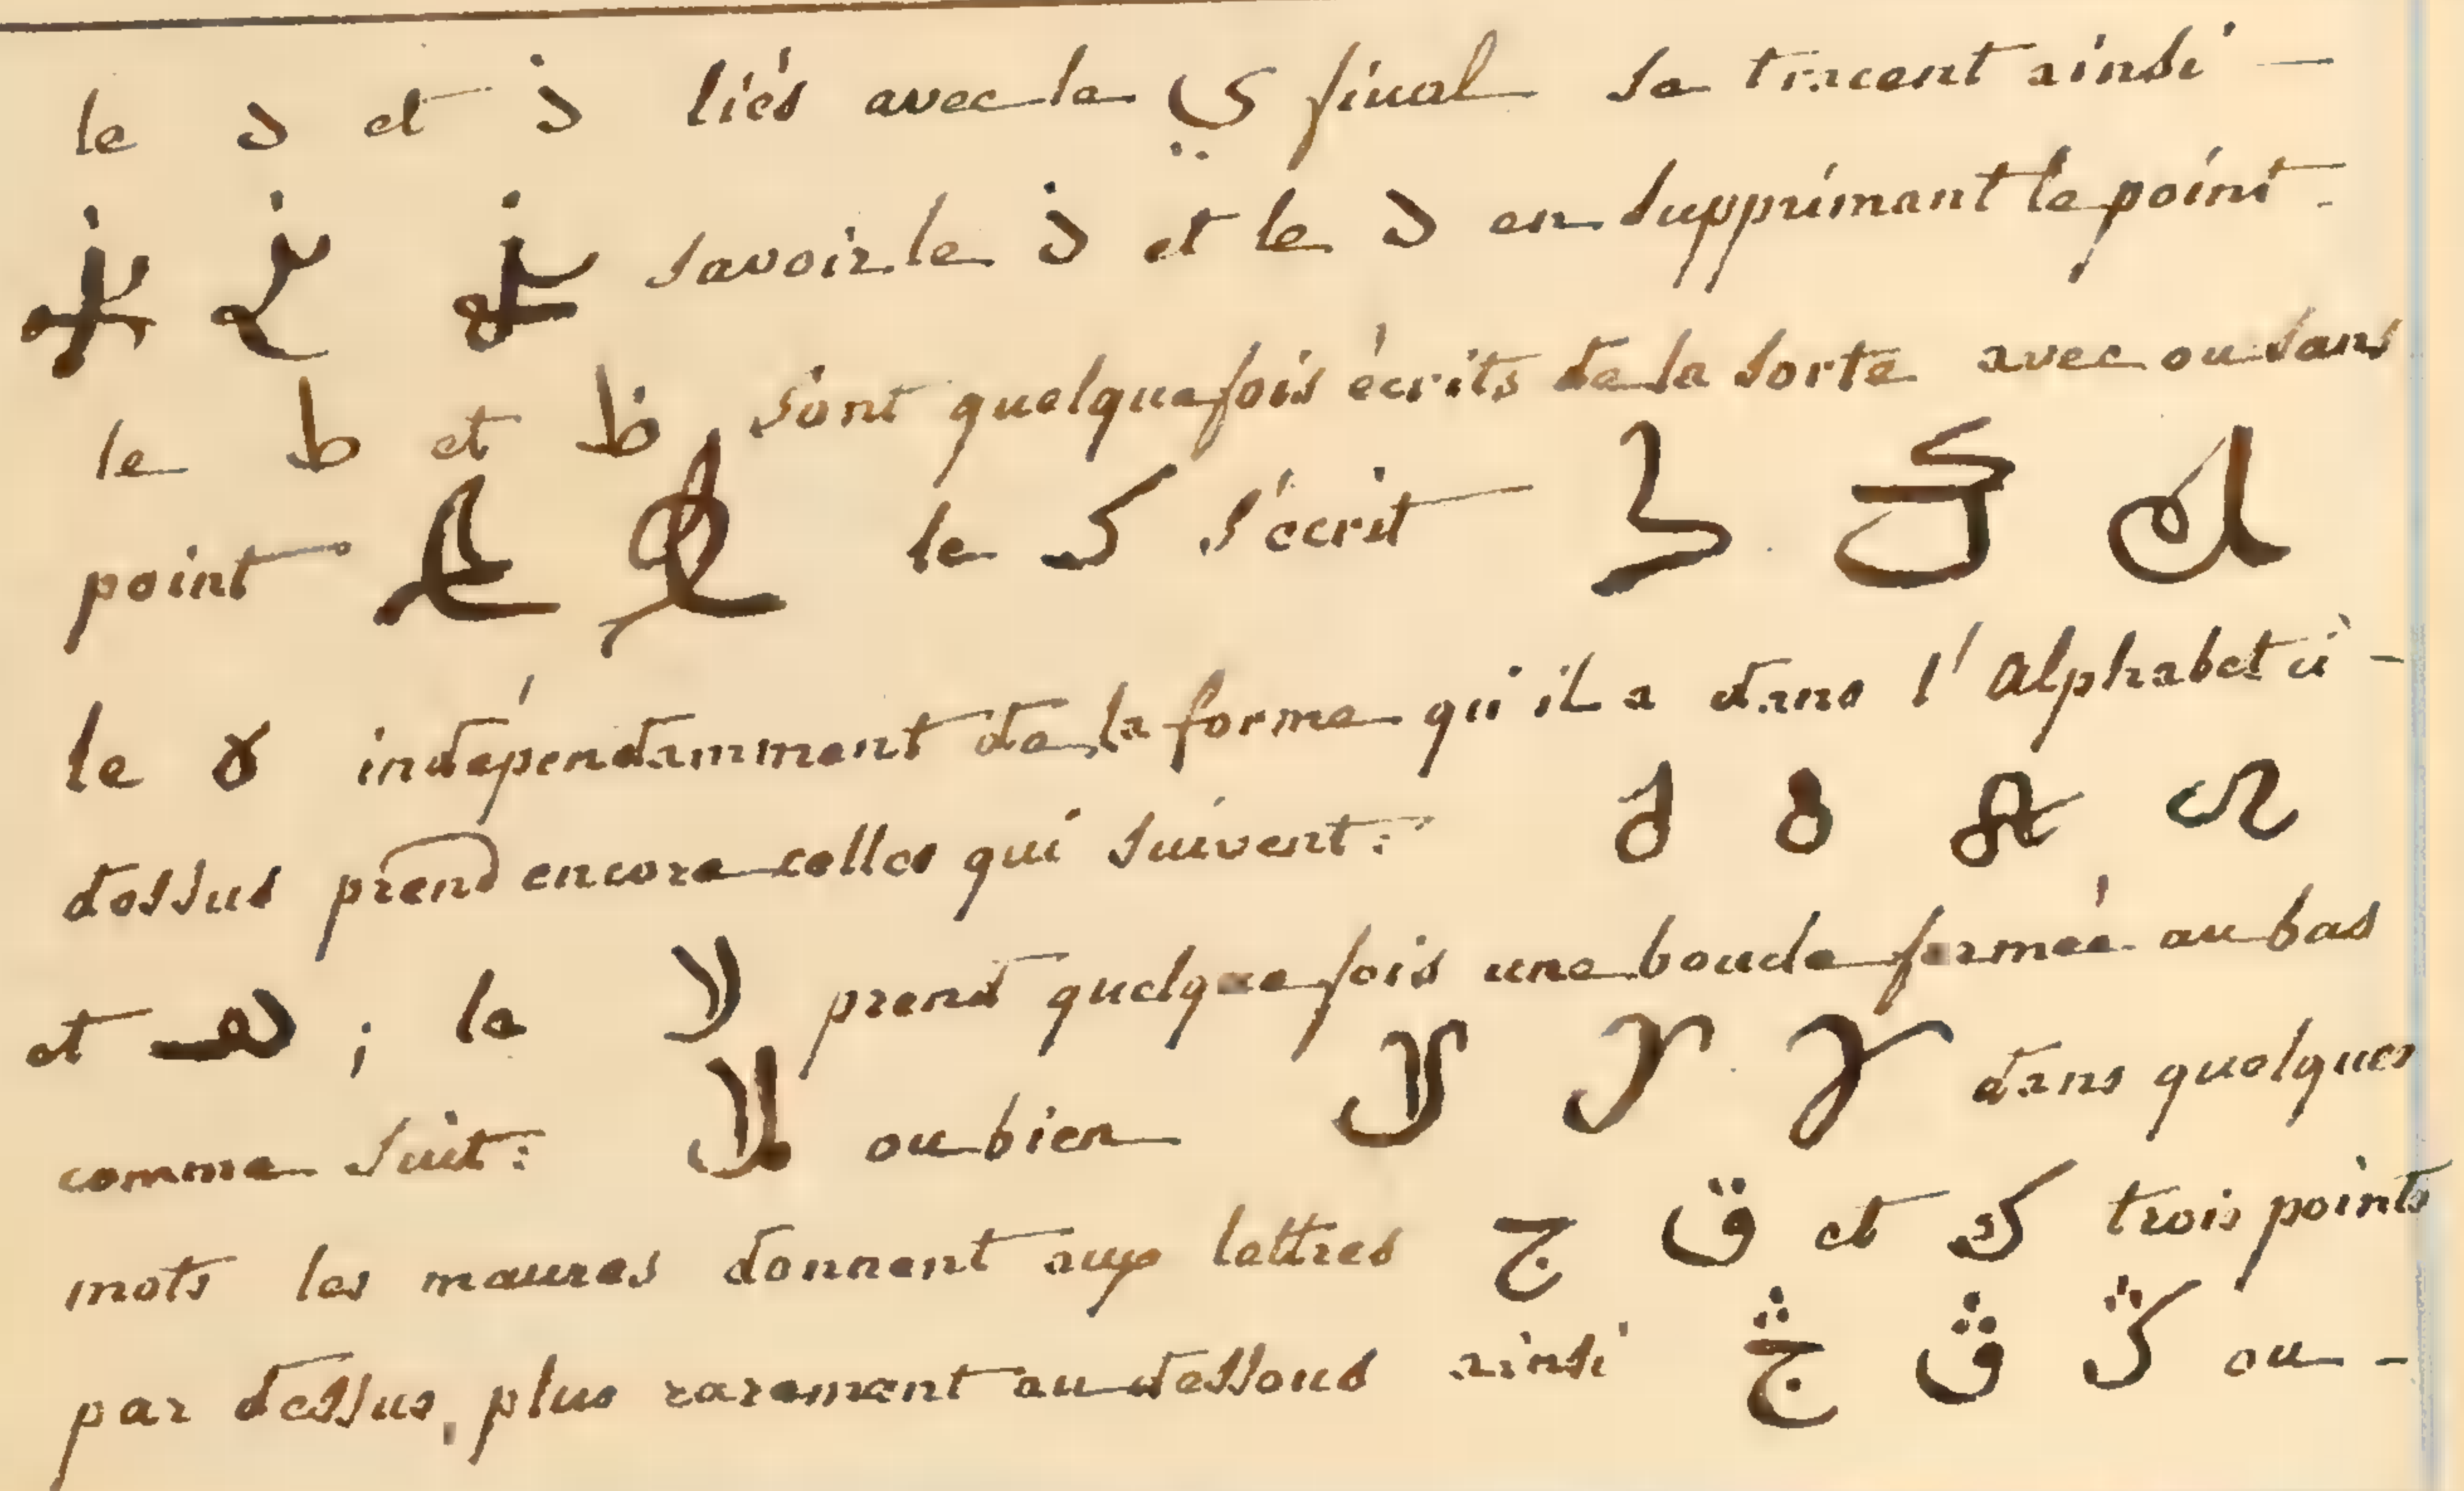 le د et ذ liés avec le ي final se tracent ainsi —
savoir le ذ et le د en supprimant le point.
le ط et ظ sont quelquefois écrits de la sorte avec ou sans
point le ك s'écrit
le ه indépendamment de la forme qu'il a dans l'Alphabet ci-
dessus prend encore celles qui suivent:
et ; le لا prend quelquefois une boucle fermée au bas
comme suit: لا ou bien dans quelques
mots les maures donnent aux lettres ج ق et ك trois points
par dessus, plus rarement au dessous ainsi ou -